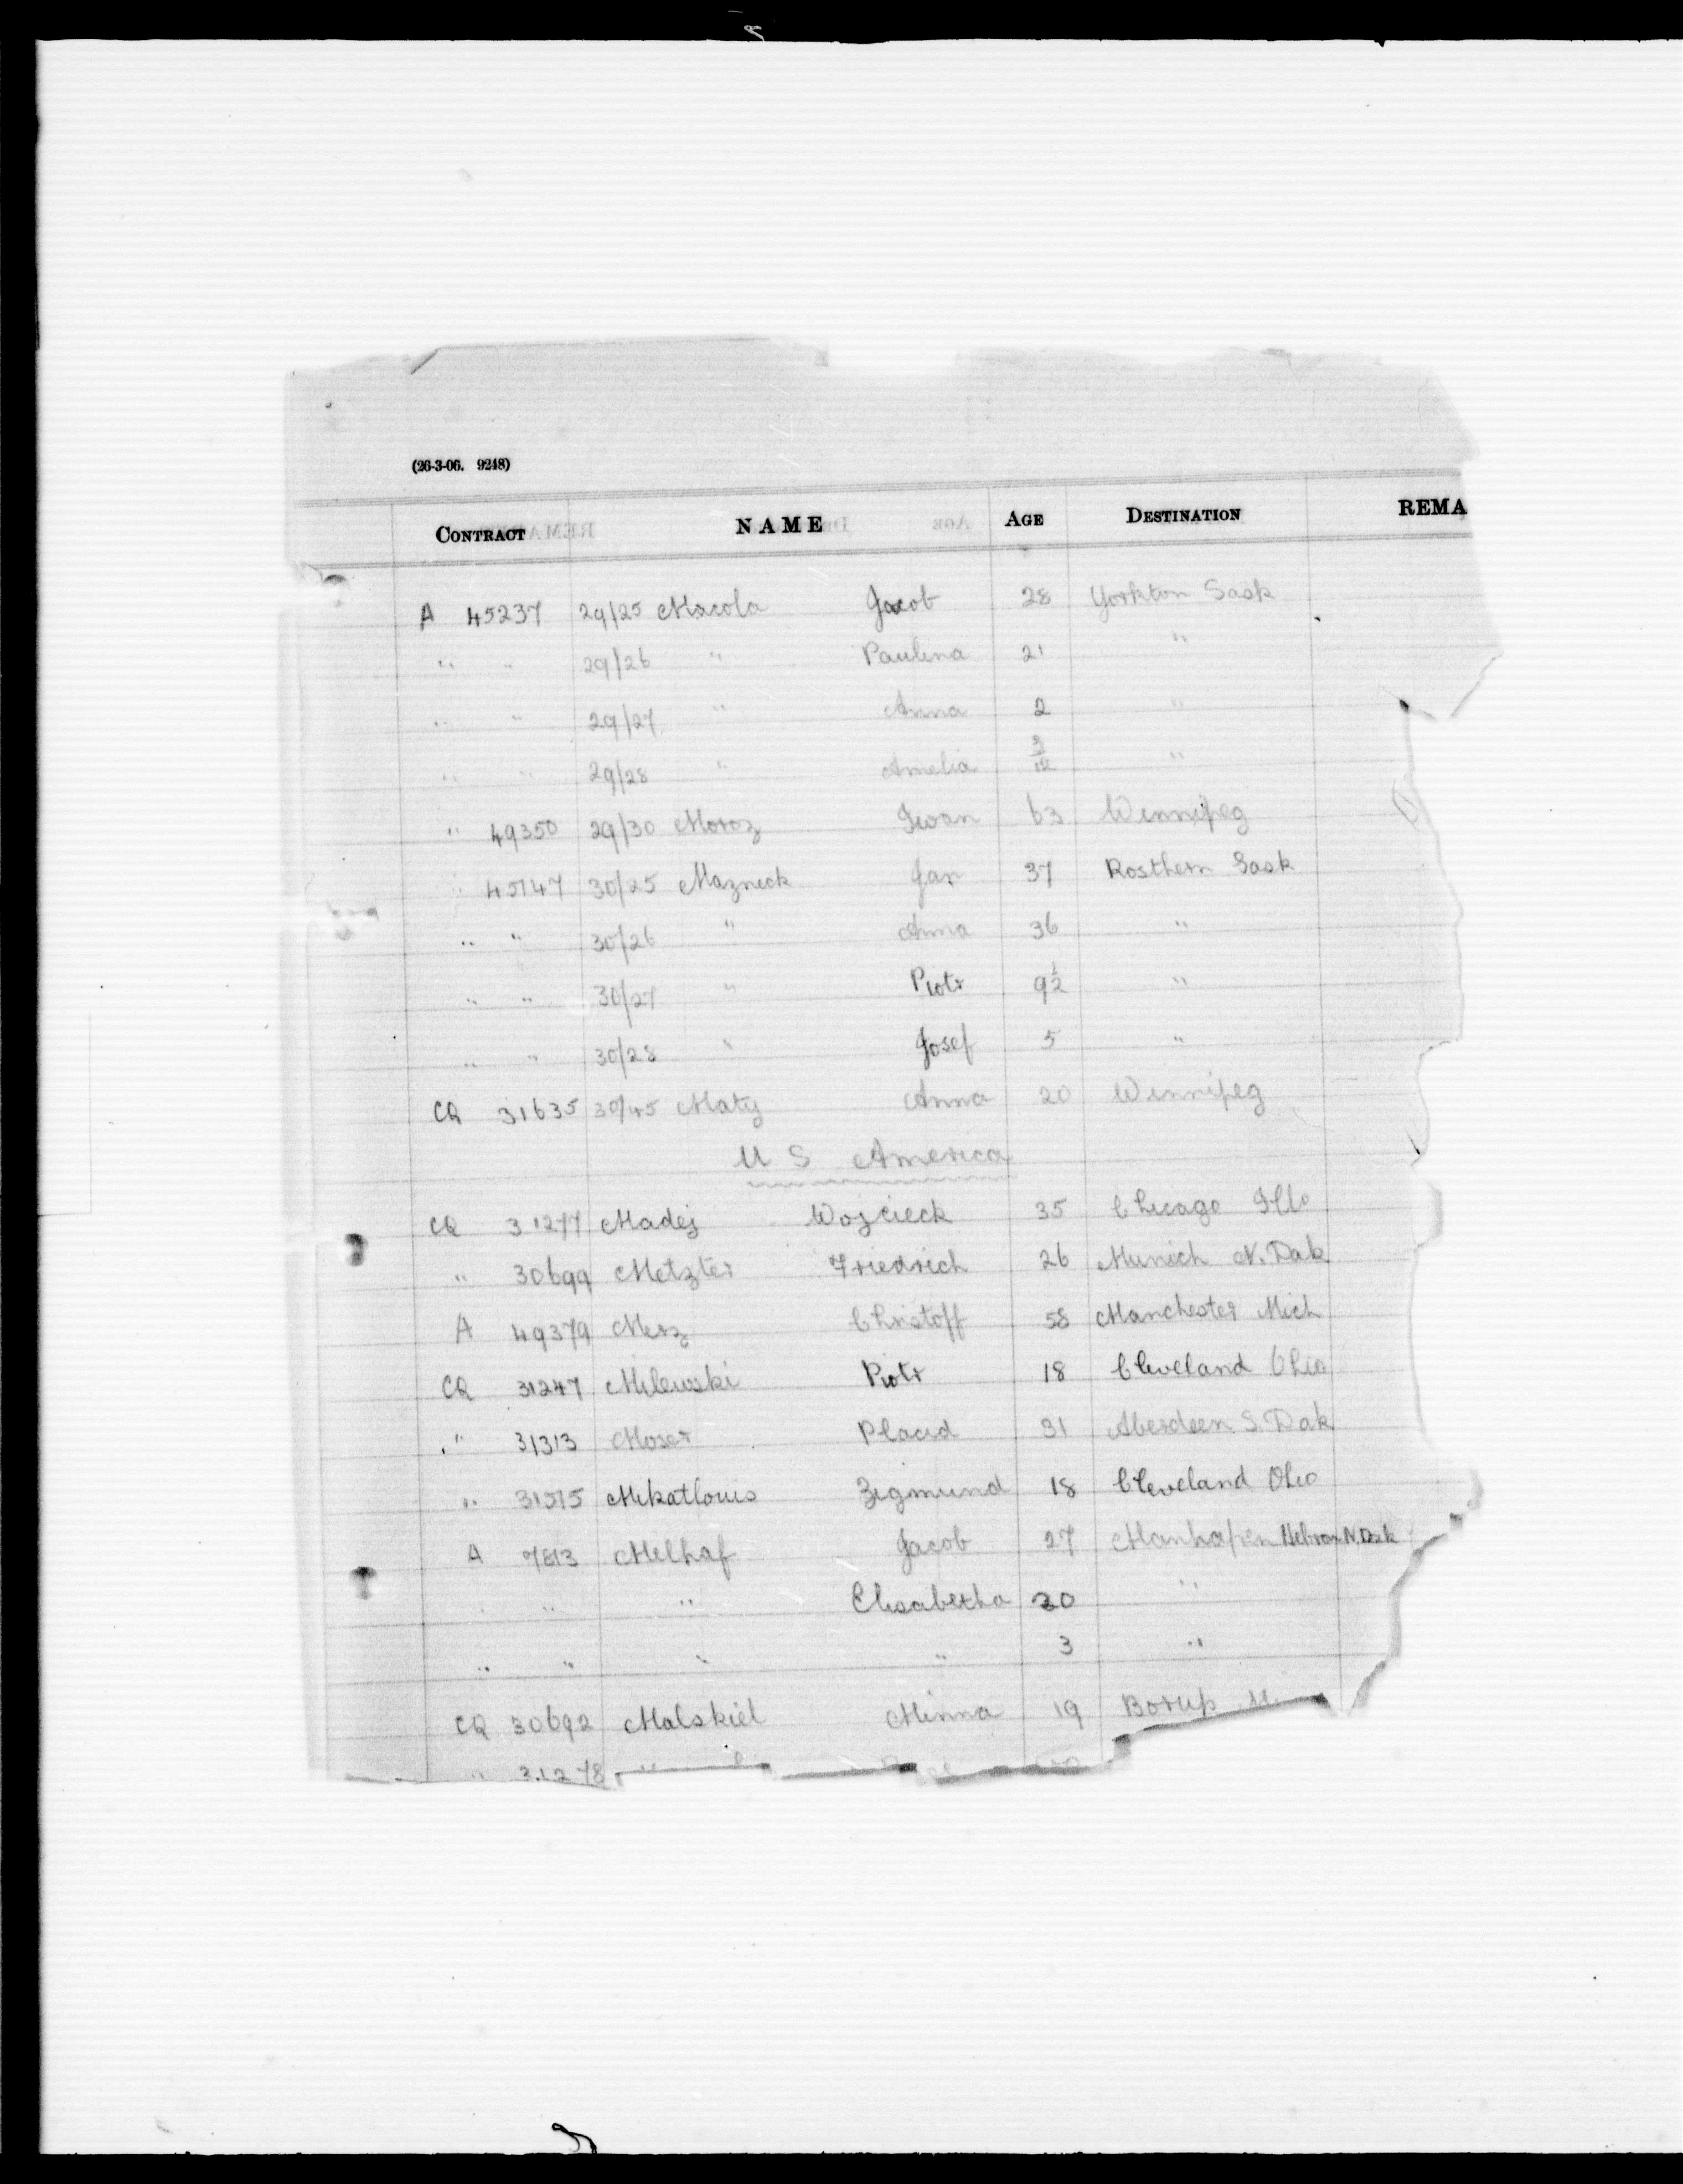 (26-3-06. 9248)
CONTRACT NAME AGE DESTINATION REMA
A 45237 29/25 Macola Jacob 28 Yorkton Sask
" " 29/26 " Paulina 21 "
" " 29/27 " Anna 2 "
" " 29/28 " Amelia "
" 49350 29/30 Moroz Iwan 63 Winnipeg
" 45147 30/25 Mazneck Jan 37 Rosthern Sask
" " 30/26 " Anna 36 "
" " 30/27 " Piotr 9½ "
" " 30/28 " Josef 5 "
CQ 31635 30/45 Maty Anna 20 Winnipeg
U S America
CQ 31277 Madej Wojcieck 35 Chicago Illo
" 30699 Metzter Friedrich 26 Munich N. Dak
A 49379 Merz Christoff 58 Manchester Mich
CQ 31247 Milewski Piotr 18 Cleveland Ohio
" 31313 Moser Placid 31 Aberdeen S. Dak
" 31515 Mikatlouis Zigmund 18 Cleveland Ohio
A 7613 Melhaf Jacob 27 Manhafen Hebron N. Dak
" " " Elisabetha 20 "
" " " " 3 "
CQ 30692 Malskiel Minna 19 Borup
" 31278